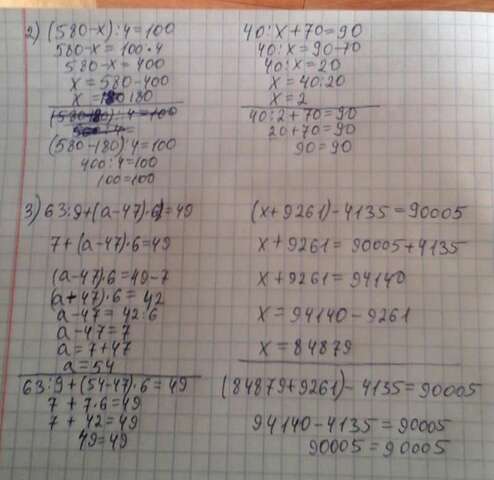 2) (580-x):4=100
580-x=100·4
580-x=400
x=580-400
x=180
(580-180):4=100
(580-180):4=100
400:4=100
100=100
40:x+70=90
40:x=90-70
40:x=20
x=40:20
x=2
40:2+70=90
20+70=90
90=90
3) 63:9+(a-47)·6=49
7+(a-47)·6=49
(a-47)·6=49-7
(a+47)·6=42
a-47=42:6
a-47=7
a=7+47
a=54
63:9+(54-47)·6=49
7+7·6=49
7+42=49
49=49
(x+9261)-4135=90005
x+9261=90005+4135
x+9261=94140
x=94140-9261
x=84879
(84879+9261)-4135=90005
94140-4135=90005
90005=90005